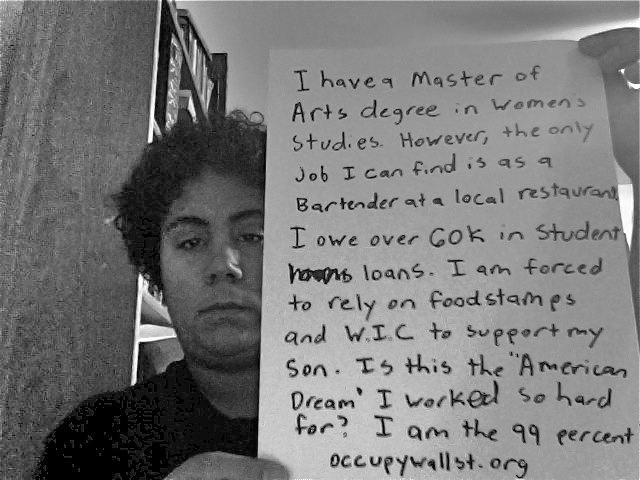 I have a Master of
Arts degree in Women's
Studies. However, the only
Job I can find is as a
Bartender at a local restaurant
I owe over 60K in Student
loans. I am forced
to rely on foodstamps
and W.I.C to support my
Son. Is this the "American
Dream' I worked so hard
for? I am the 99 percent
occupywallst.org